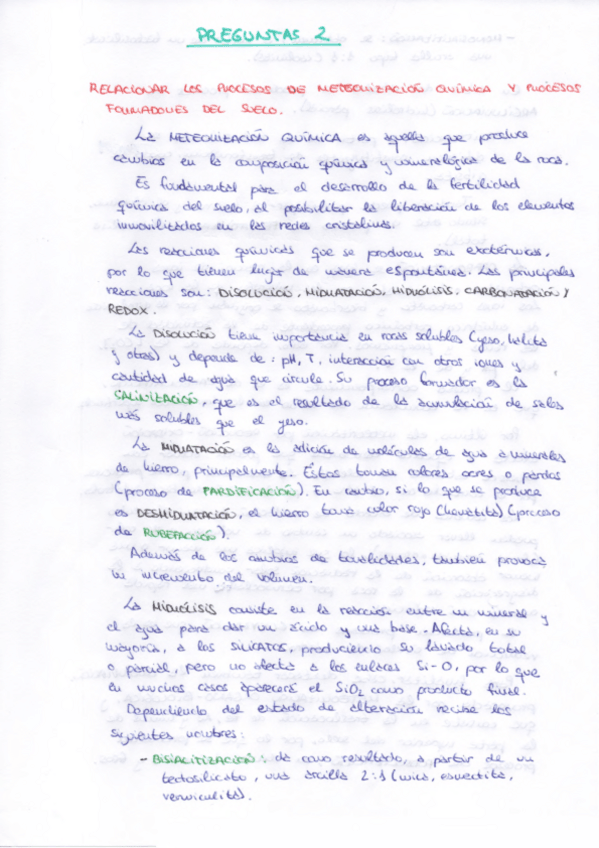 PREGUNTAS 2
RELACIONAR LOS PROCESOS DE METEORIZACIÓN QUÍMICA Y PROCESOS
FORMADORES DEL SUELO.
La METEORIZACIÓN QUÍMICA es aquella que produce
cambios en la composición química y mineralógica de la roca.
Es fundamental para el desarrollo de la fertilidad
química del suelo, al posibilitar la liberación de los elementos
inmovilizados en las redes cristalinas.
Las reacciones químicas que se producen son exotérmicas,
por lo que tienen lugar de manera espontánea. Las principales
reacciones son: DISOLUCIÓN, HIDRATACIÓN, HIDRÓLISIS, CARBONATACIÓN Y
REDOX.
La DISOLUCIÓN tiene importancia en rocas solubles (yeso, halita
y otras) y depende de: pH, T, interacción con otros iones y
cantidad de agua que circule. Su proceso formador es la
SALINIZACIÓN, que es el resultado de la acumulación de sales
más solubles que el yeso.
La HIDRATACIÓN es la adición de moléculas de agua a minerales
de hierro, principalmente. Éstos toman colores ocres o pardos
(proceso de PARDIFICACIÓN). En cambio, si lo que se produce
es DESHIDRATACIÓN, el hierro toma color rojo (hematita) (proceso
de RUBEFACCIÓN).
Además de los cambios de tonalidades, también provoca
un incremento del volumen.
La HIDRÓLISIS consiste en la reacción entre un mineral y
el agua para dar un ácido y una base. Afecta, en su
mayoría, a los SILICATOS, produciendo su lavado total
o parcial, pero no afecta a los enlaces Si-O, por lo que
en muchos casos aparecerá el SiO2 como producto final.
Dependiendo del estado de alteración recibe los
siguientes nombres:
- BISIALITIZACIÓN: da como resultado, a partir de un
tectosilicato, una arcilla 2:1 (mica, esmectita,
vermiculita).